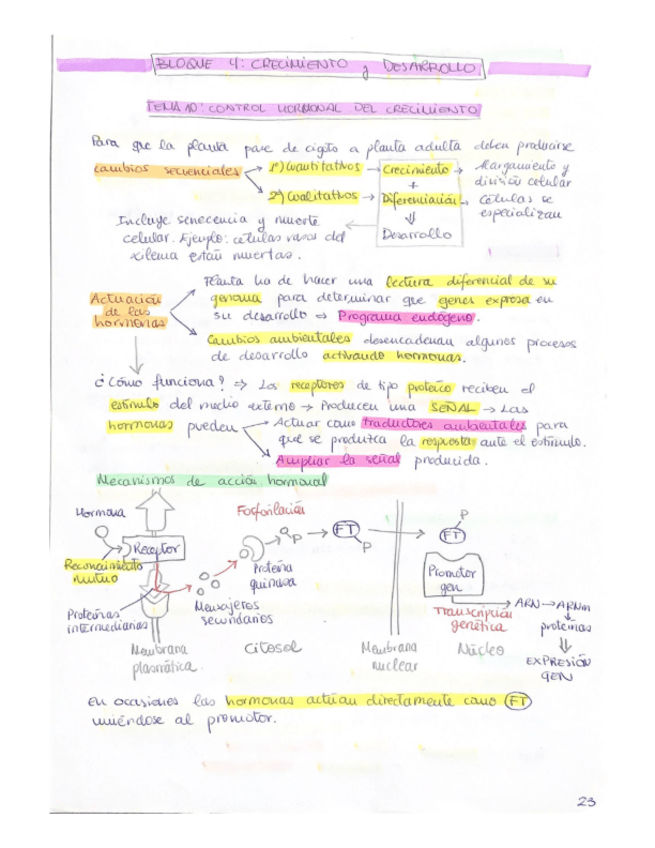 BLOQUE 4: CRECIMIENTO y DESARROLLO
TEMA 10: CONTROL HORMONAL DEL CRECIMIENTO
Para que la planta pase de cigoto a planta adulta deben producirse
cambios secuenciales → 1º) Cuantitativos → Crecimiento → Alargamiento y división celular
+
→ 2º) Cualitativos → Diferenciación → Células se especializan
⇓
Desarrollo
Incluye senecencia y muerte
celular. Ejemplo: células vasos del
xilema están muertas.
Actuación de las hormonas
Planta ha de hacer una lectura diferencial de su
genoma para determinar que genes expresa en
su desarrollo ⇒ Programa endógeno.
Cambios ambientales desencadenan algunos procesos
de desarrollo activando hormonas.
¿Cómo funciona? ⇒ Los receptores de tipo proteico reciben el
estímulo del medio externo → Producen una SEÑAL → Las
hormonas pueden → Actuar como traductores ambientales para
que se produzca la respuesta ante el estímulo.
Ampliar la señal producida.
Mecanismos de acción hormonal
Hormona
Receptor
Reconocimiento
mutuo
Proteínas
intermediarias
Membrana
plasmática.
Mensajeros
secundarios
Fosforilación
Proteína
quinasa
P
Citosol
FT
P
Membrana
nuclear
P
FT
Promotor
gen
Transcripción
genética
Núcleo
ARN → ARNm
proteínas
⇓
EXPRESIÓN
GEN
En ocasiones las hormonas actúan directamente como FT
uniéndose al promotor.
23